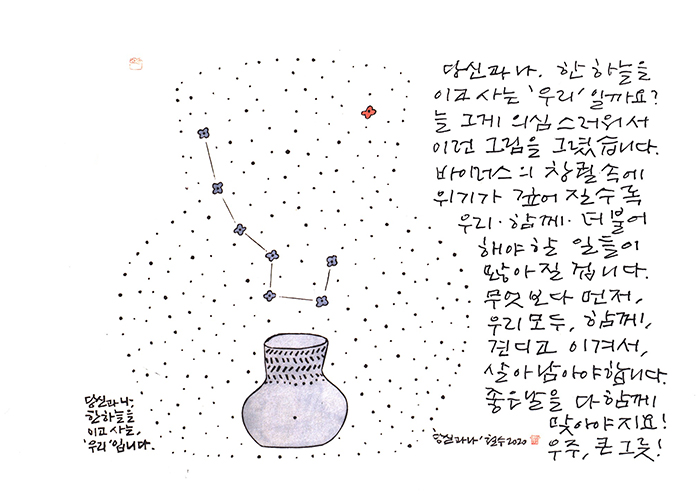 당신과 나. 한 하늘을
이고 사는 '우리' 일까요?
늘 그게 의심스러워서
이런 그림을 그렸습니다.
바이러스의 창궐 속에
위기가 깊어 질수록
우리·함께·더불어
해야할 일들이
많아질 겁니다.
무엇보다 먼저,
우리 모두, 함께,
견디고 이겨서,
살아남아야합니다.
좋은날을 다 함께
맞아야지요!
우주, 큰 그릇!
당신과 나,
한 하늘을
이고 사는,
'우리'입니다.
'당신과 나' 철수 2020